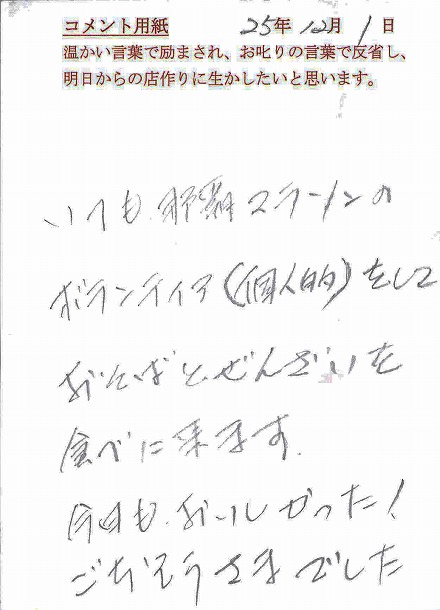 コメント用紙 25年 12月 1日
温かい言葉で励まされ、お叱りの言葉で反省し、
明日からの店作りに生かしたいと思います。
いつも、那覇マラソンの
ボランティア(個人的)をして
おそばとぜんざいを
食べに来ます。
今日も、おいしかった!
ごちそうさまでした